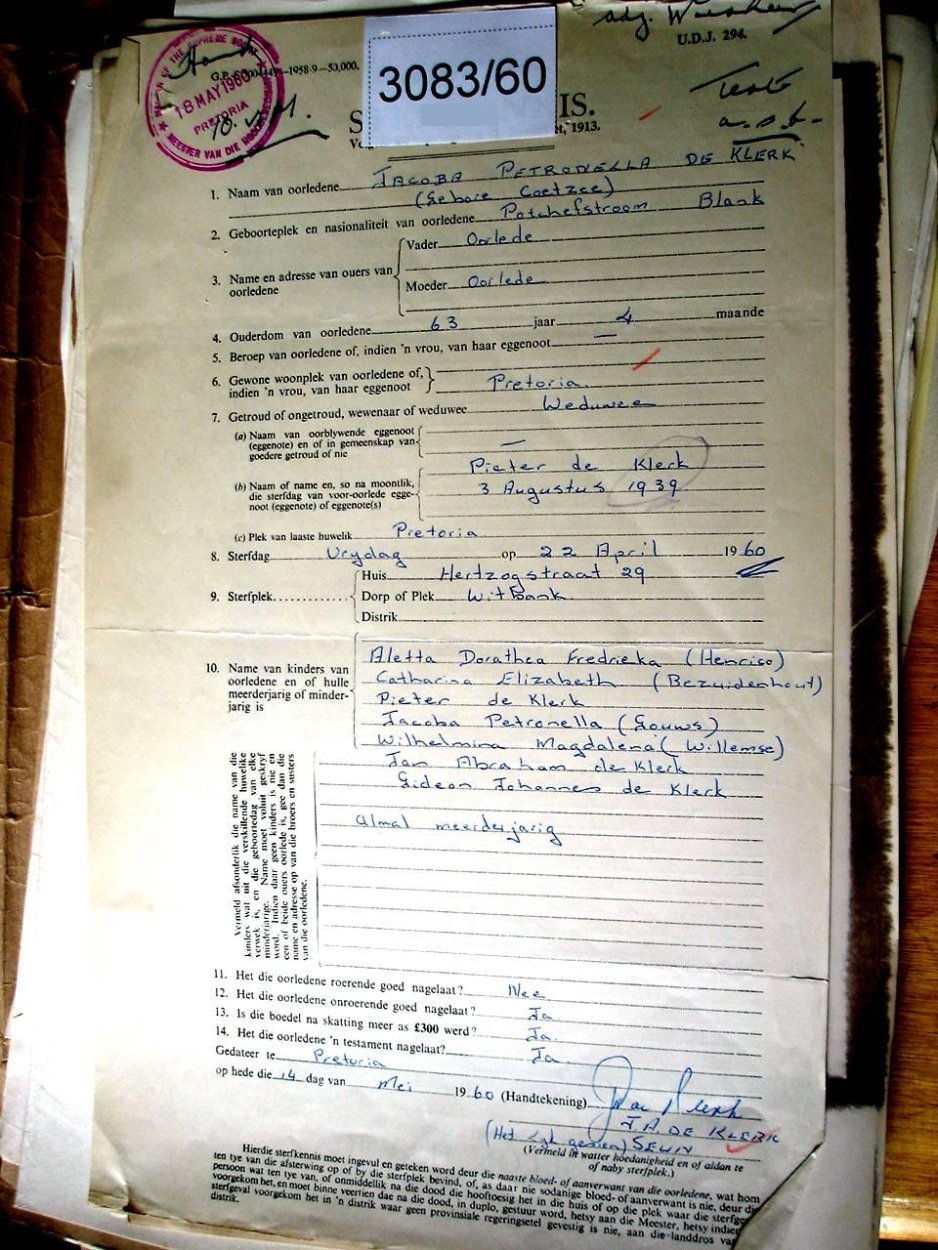 adj.
U.D.J. 294.
THE SUPREME
18 MAY 1960
PRETORIA
MEESTER VAN DIE
–1958-9—53,000.
3083/60
S IS.
, 1913.
1. Naam van oorledene JACOBA PETRONELLA DE KLERK
(Gebore Coetzee)
2. Geboorteplek en nasionaliteit van oorledene Potchefstroom Blank
3. Name en adresse van ouers van oorledene
Vader Oorlede
Moeder Oorlede
4. Ouderdom van oorledene 63 jaar 4 maande
5. Beroep van oorledene of, indien 'n vrou, van haar eggenoot —
6. Gewone woonplek van oorledene of,
indien 'n vrou, van haar eggenoot Pretoria
7. Getroud of ongetroud, wewenaar of weduwee Weduwee
(a) Naam van oorblywende eggenoot
(eggenote) en of in gemeenskap van
goedere getroud of nie —
Pieter de Klerk
(b) Naam of name en, so na moontlik,
die sterfdag van voor-oorlede egge-
noot (eggenote) of eggenote(s)
3 Augustus 1939
(c) Plek van laaste huwelik Pretoria
8. Sterfdag Vrydag op 22 April 1960
9. Sterfplek
Huis Hertzogstraat 29
Dorp of Plek Witbank
Distrik
10. Name van kinders van
oorledene en of hulle
meerderjarig of minder-
jarig is
Aletta Dorathea Fredrieka (Henrico)
Catharina Elizabeth (Bezuidenhout)
Pieter de Klerk
Jacoba Petronella (Gouws)
Wilhelmina Magdalena (Willemse)
Jan Abraham de Klerk
Gideon Johannes de Klerk
Almal meerderjarig
Vermeld afsonderlik die name van die
kinders wat uit die verskillende huwelike
verwek is, en die geboortedag van elke
minderjarige. Name moet voluit geskryf
word. Indien daar geen kinders is nie en
een of beide ouers oorlede is, gee dan die
name en adresse op van die broers en susters
van die oorledene.
11. Het die oorledene roerende goed nagelaat? Nee
12. Het die oorledene onroerende goed nagelaat? Ja
13. Is die boedel na skatting meer as £300 werd? Ja.
14. Het die oorledene 'n testament nagelaat? Ja
Gedateer te Pretoria
op hede die 14 dag van Mei 1960 (Handtekening)
J.A. DE KLERK
(Het Lyk gesien) SEUN
(Vermeld in watter hoedanigheid en of aldan te
of naby sterfplek.)
Hierdie sterfkennis moet ingevul en geteken word deur die naaste bloed- of aanverwant van die oorledene, wat hom
ten tye van die afsterwing op of by die sterfplek bevind, of, as daar nie sodanige bloed- of aanverwant is nie, deur die
persoon wat ten tye van, of onmiddellik na die dood die hooftoesig het in die huis of op die plek waar die sterfge
voorgekom het, en moet binne veertien dae na die dood, in duplo, gestuur word, hetsy aan die Meester, hetsy indien
sterfgeval voorgekom het in 'n distrik waar geen provinsiale regeringsetel gevestig is nie, aan die landdros va
distrik.